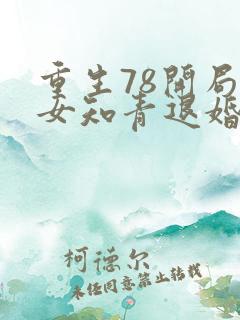 重生78开局
女知青退婚
柯德尔
未经同意禁止转载